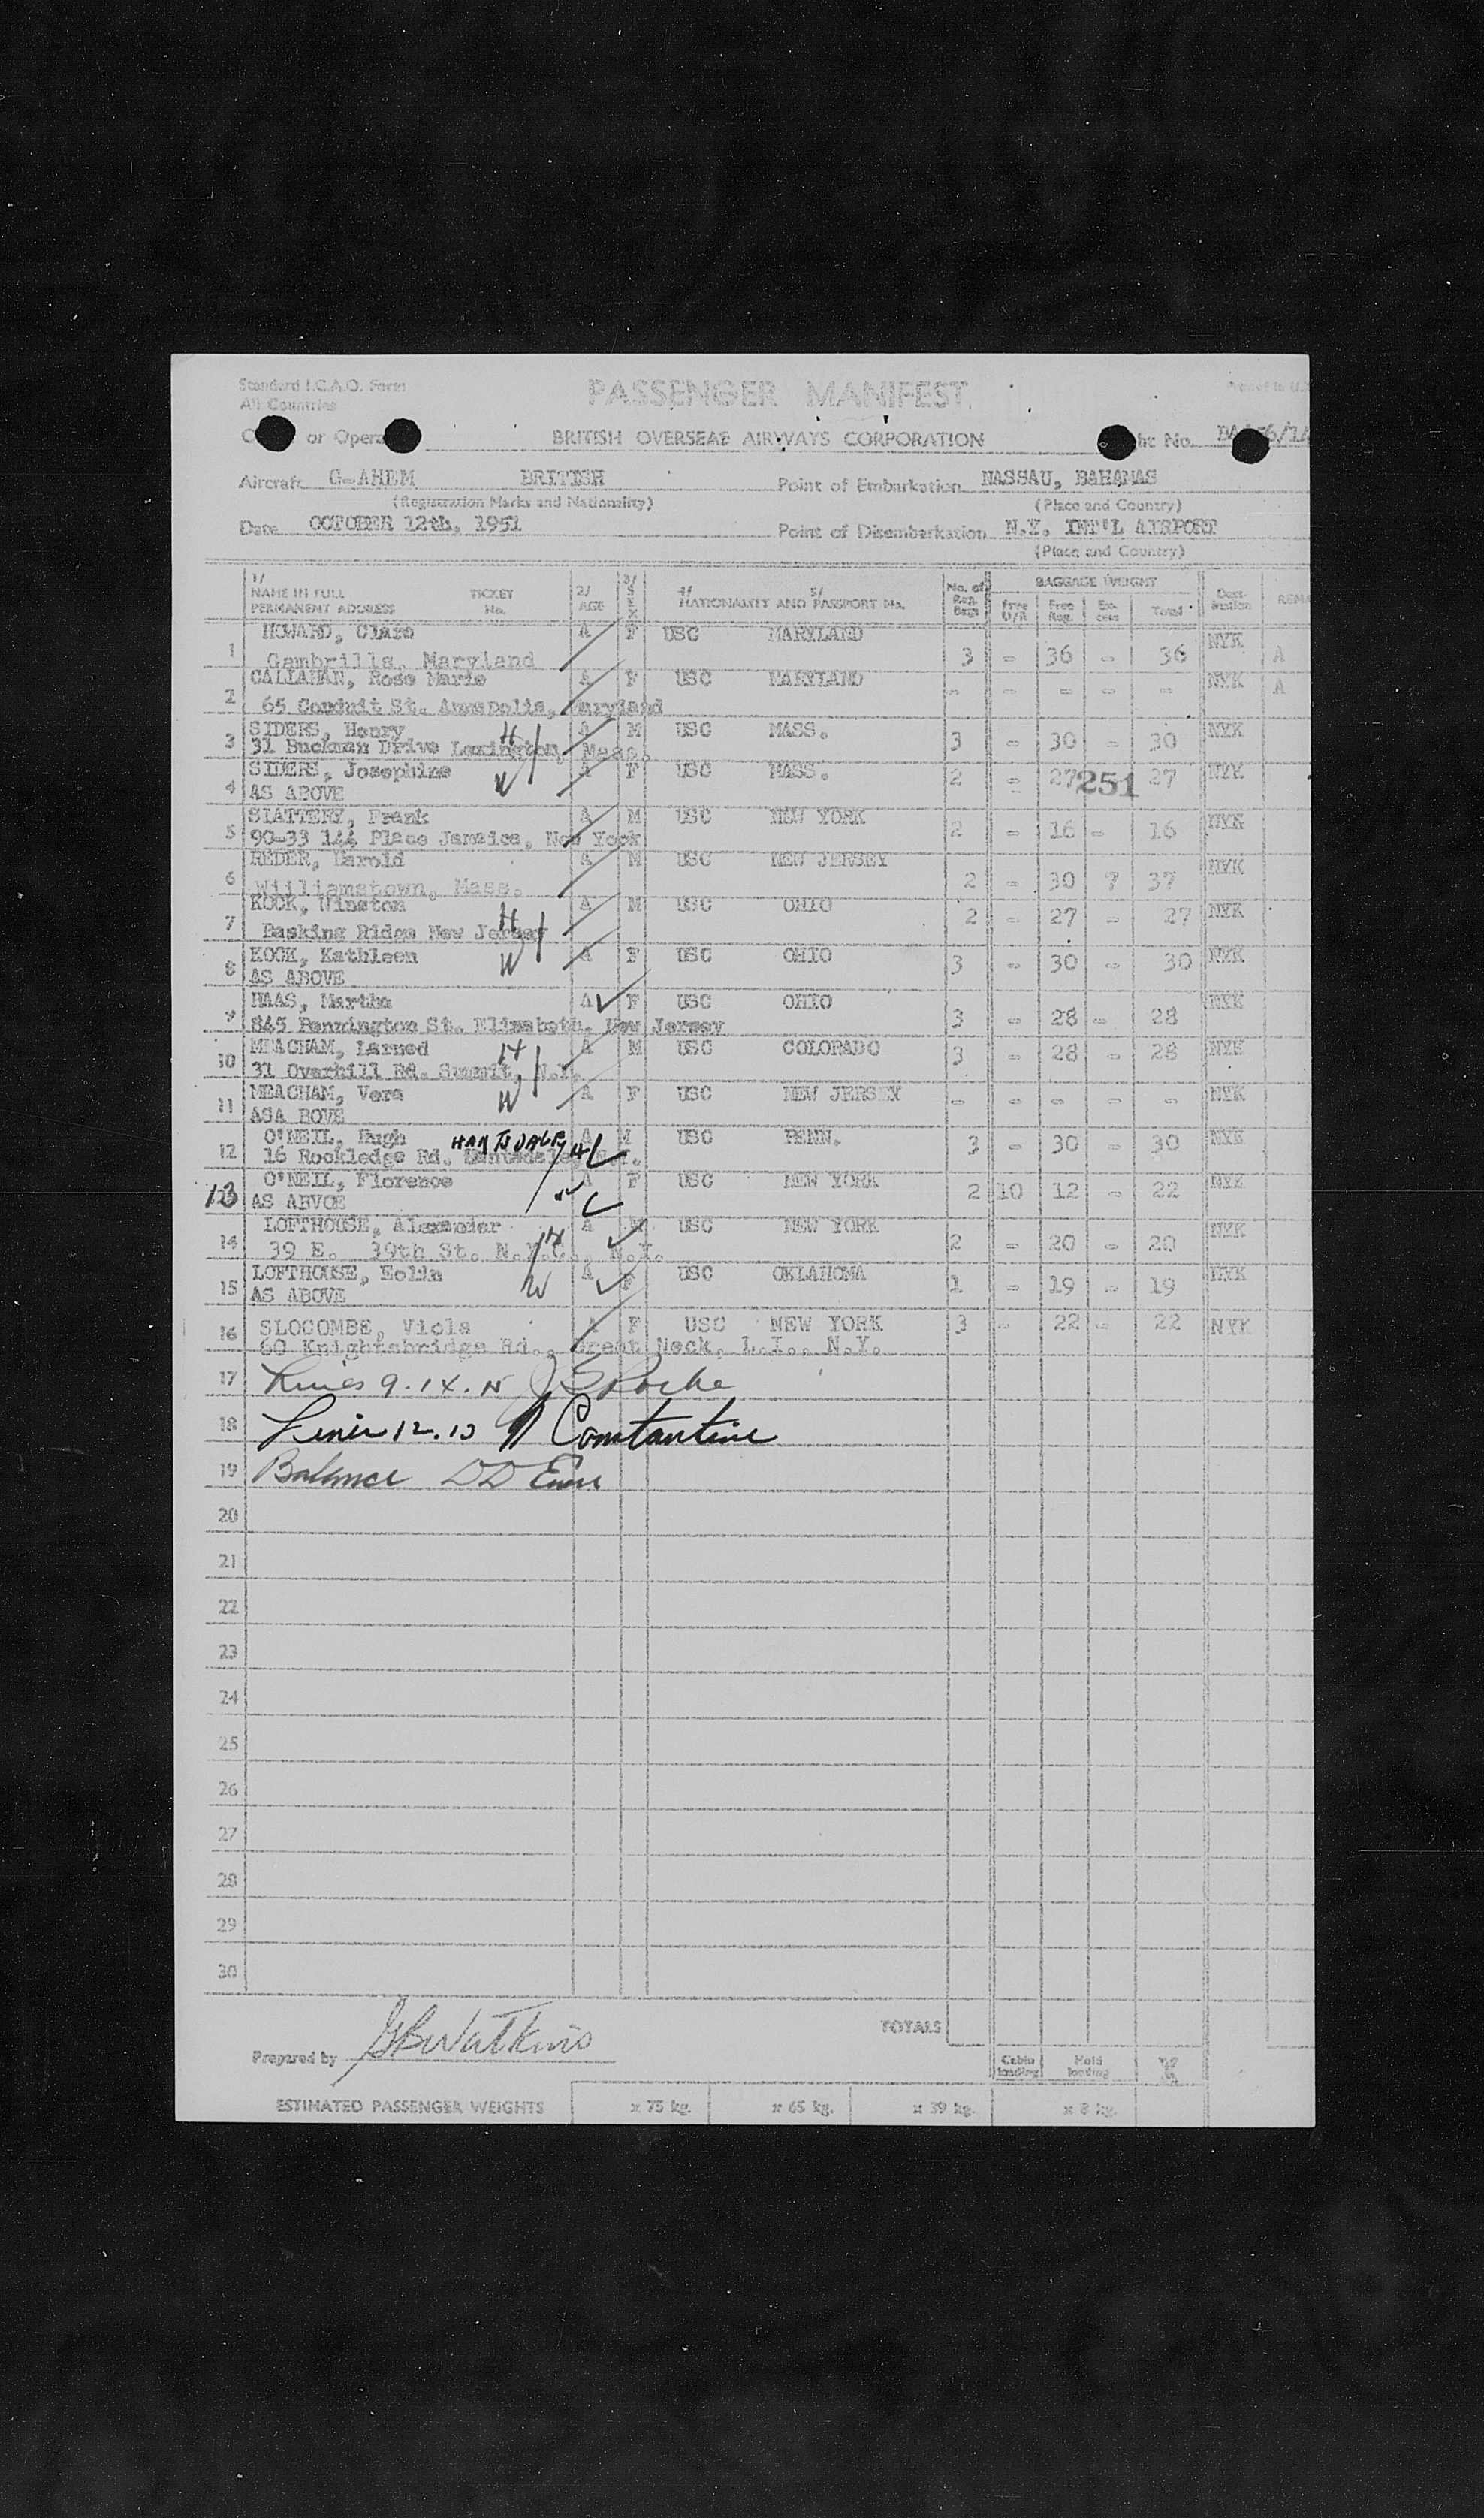 Standard I.C.A.O. Form
All Countries
PASSENGER MANIFEST
or Opera
BRITISH OVERSEAS AIRWAYS CORPORATION
ht No.
Aircraft G-AHEM BRITISH Point of Embarkation NASSAU, BAHAMAS
(Registration Marks and Nationality) (Place and Country)
Date OCTOBER 12th, 1951 Point of Disembarkation N.Y. INT'L AIRPORT
(Place and Country)
1/ NAME IN FULL PERMANENT ADDRESS TICKET No. 2/ AGE 3/ SEX 4/ 5/ NATIONALITY AND PASSPORT No. No. of Reg. Bags BAGGAGE WEIGHT Free U/A Free Reg. Ex-cess Total Dest-ination REMA
1 HOWARD, Clare A F USC MARYLAND 3 - 36 - 36 NYK A
Gambrills, Maryland
2 CALLAHAN, Rose Marie A F USC MARYLAND - - - - - NYK A
65 Conduit St. Annapolis, Maryland
3 SIDERS, Henry H A M USC MASS. 3 - 30 - 30 NYK
31 Buckman Drive Lexington, Mass.
4 SIDERS, Josephine W A F USC MASS. 2 - 27 251 27 NYK
AS ABOVE
5 SLATTERY, Frank A M USC NEW YORK 2 - 16 - 16 NYK
90-33 144 Place Jamaica, New York
6 REDER, Harold A M USC NEW JERSEY 2 - 30 7 37 NYK
Williamstown, Mass.
7 KOCK, Winston H A M USC OHIO 2 - 27 - 27 NYK
Basking Ridge New Jersey
8 KOCK, Kathleen W A F USC OHIO 3 - 30 - 30 NYK
AS ABOVE
9 HAAS, Martha A F USC OHIO 3 - 28 - 28 NYK
845 Pennington St. Elizabeth, New Jersey
10 MEACHAM, Larned H A M USC COLORADO 3 - 28 - 28 NYK
31 Overhill Rd. Summit, N.J.
11 MEACHAM, Vera W A F USC NEW JERSEY - - - - - NYK
ASA BOVE
12 O'NEIL, Hugh HARTSDALE H A M USC PENN. 3 - 30 - 30 NYK
16 Rockledge Rd.
13 O'NEIL, Florence W A F USC NEW YORK 2 10 12 - 22 NYK
AS ABVOE
14 LOFTHOUSE, Alexander H A M USC NEW YORK 2 - 20 - 20 NYK
39 E. 39th St. N.Y.C., N.Y.
15 LOFTHOUSE, Eolin W A F USC OKLAHOMA 1 - 19 - 19 NYK
AS ABOVE
16 SLOCOMBE, Viola A F USC NEW YORK 3 - 22 - 22 NYK
60 Knightsbridge Rd., Great Neck, L.I., N.Y.
17 Lines 9.14.15 J S Roche
18 Lines 12.13 Constantine
19 Balance DD
20
21
22
23
24
25
26
27
28
29
30
TOTALS
Prepared by GBWatkins
Cabin loading Hold loading
ESTIMATED PASSENGER WEIGHTS x 75 kg. x 65 kg. x 39 kg. x 8 kg.